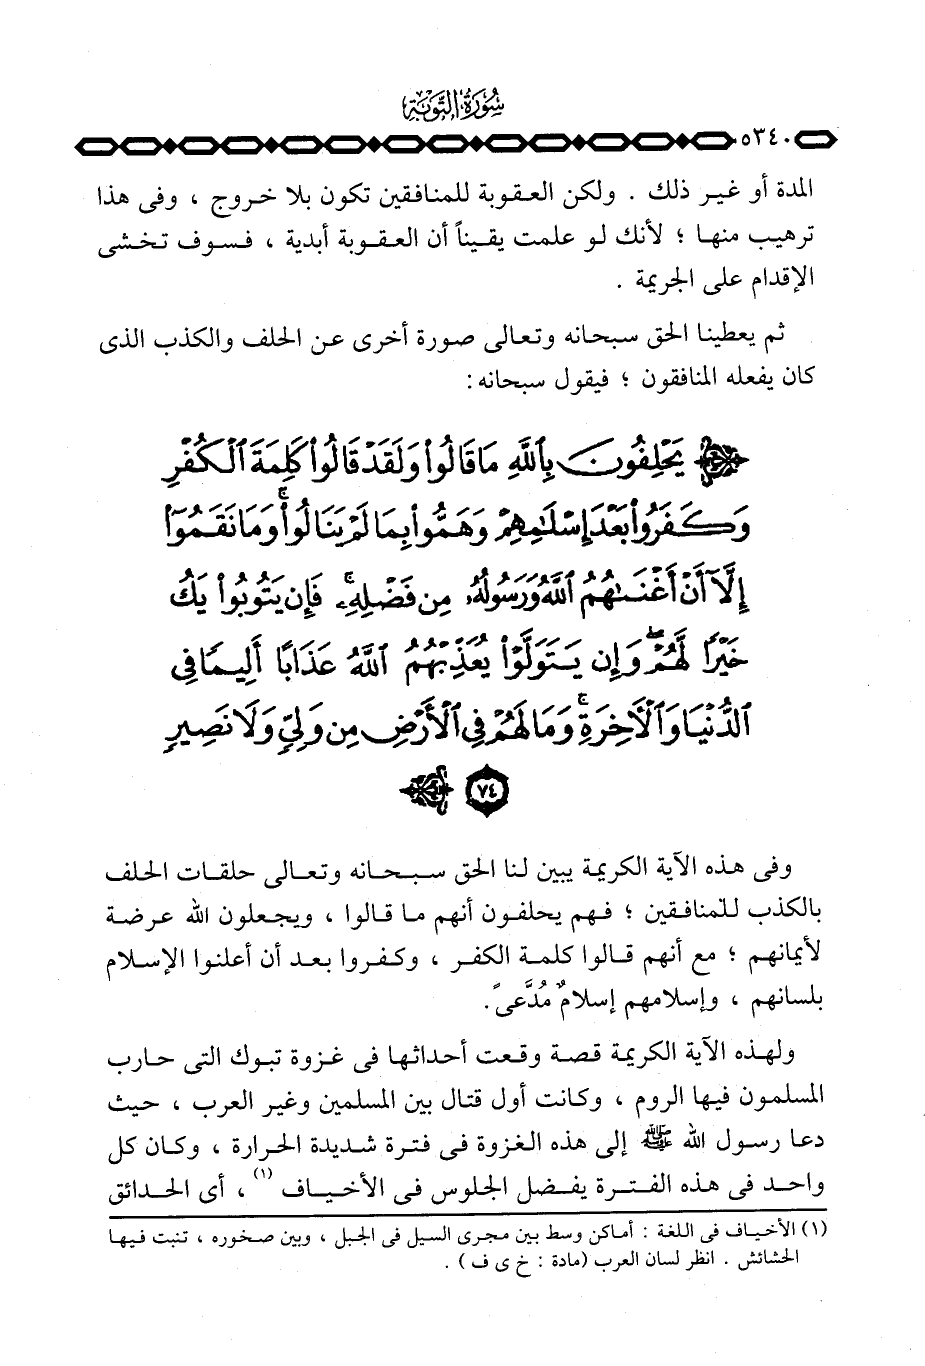 سُورَةُ التَّوْبَةِ
٥٣٤٠
المدة أو غير ذلك . ولكن العقوبة للمنافقين تكون بلا خروج ، وفى هذا
ترهيب منها ؛ لأنك لو علمت يقيناً أن العقوبة أبدية ، فسوف تخشى
الإقدام على الجريمة .
ثم يعطينا الحق سبحانه وتعالى صورة أخرى عن الحلف والكذب الذى
كان يفعله المنافقون ؛ فيقول سبحانه :
يَحْلِفُونَ بِٱللَّهِ مَا قَالُوا۟ وَلَقَدْ قَالُوا۟ كَلِمَةَ ٱلْكُفْرِ
وَكَفَرُوا۟ بَعْدَ إِسْلَٰمِهِمْ وَهَمُّوا۟ بِمَا لَمْ يَنَالُوا۟ ۚ وَمَا نَقَمُوٓا۟
إِلَّآ أَنْ أَغْنَىٰهُمُ ٱللَّهُ وَرَسُولُهُۥ مِن فَضْلِهِۦ ۚ فَإِن يَتُوبُوا۟ يَكُ
خَيْرًا لَّهُمْ ۖ وَإِن يَتَوَلَّوْا۟ يُعَذِّبْهُمُ ٱللَّهُ عَذَابًا أَلِيمًا فِى
ٱلدُّنْيَا وَٱلْأَخِرَةِ ۚ وَمَا لَهُمْ فِى ٱلْأَرْضِ مِن وَلِىٍّ وَلَا نَصِيرٍ
٧٤
وفى هذه الآية الكريمة يبين لنا الحق سبحانه وتعالى حلقات الحلف
بالكذب للمنافقين ؛ فهم يحلفون أنهم ما قالوا ، ويجعلون الله عرضة
لأيمانهم ؛ مع أنهم قالوا كلمة الكفر ، وكفروا بعد أن أعلنوا الإسلام
بلسانهم ، وإسلامهم إسلامٌ مُدَّعىً .
ولهذه الآية الكريمة قصة وقعت أحداثها فى غزوة تبوك التى حارب
المسلمون فيها الروم ، وكانت أول قتال بين المسلمين وغير العرب ، حيث
دعا رسول الله ﷺ إلى هذه الغزوة فى فترة شديدة الحرارة ، وكان كل
واحد فى هذه الفترة يفضل الجلوس فى الأخياف (١) ، أى الحدائق
(١) الأخياف فى اللغة : أماكن وسط بين مجرى السيل فى الجبل ، وبين صخوره ، تنبت فيها
الحشائش . انظر لسان العرب (مادة : خ ى ف ) .